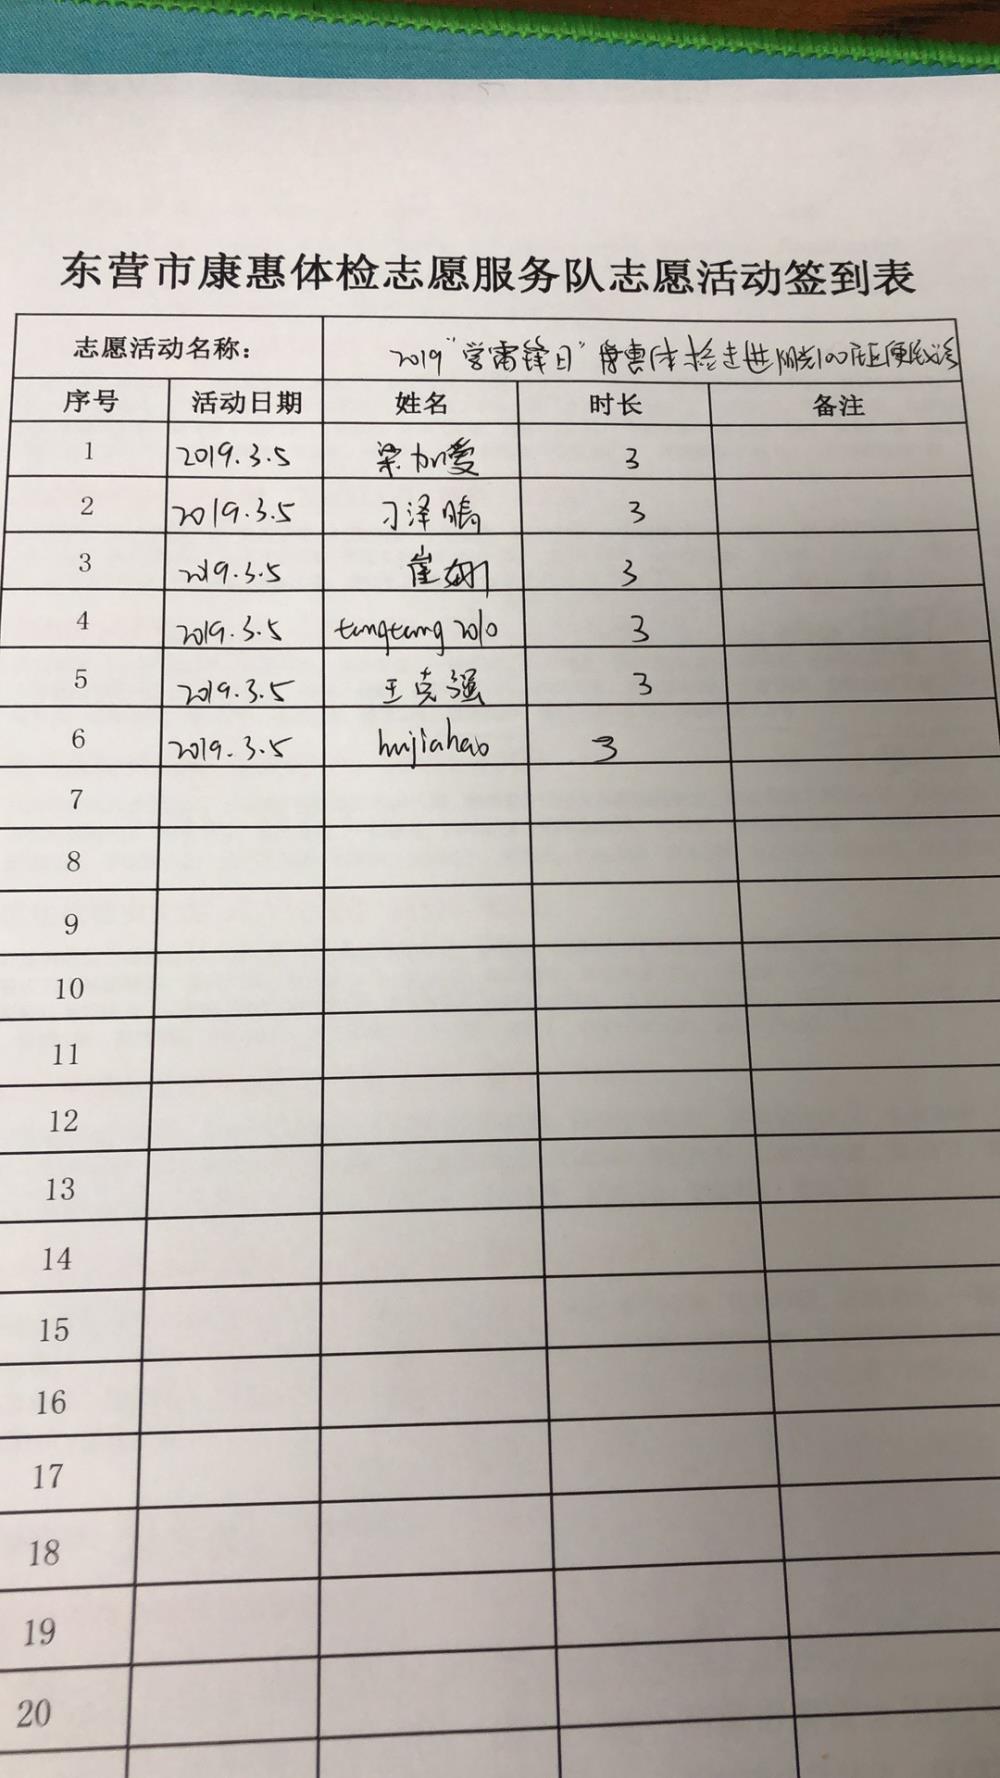 东营市康惠体检志愿服务队志愿活动签到表
志愿活动名称: 2019"学雷锋日"康惠体检走进阳光100社区便民义诊
序号 活动日期 姓名 时长 备注
1 2019.3.5 梁加爱 3
2 2019.3.5 刁泽腾 3
3 2019.3.5 崔姗 3
4 2019.3.5 tangtang2010 3
5 2019.3.5 王克强 3
6 2019.3.5 hujiahao 3
7
8
9
10
11
12
13
14
15
16
17
18
19
20